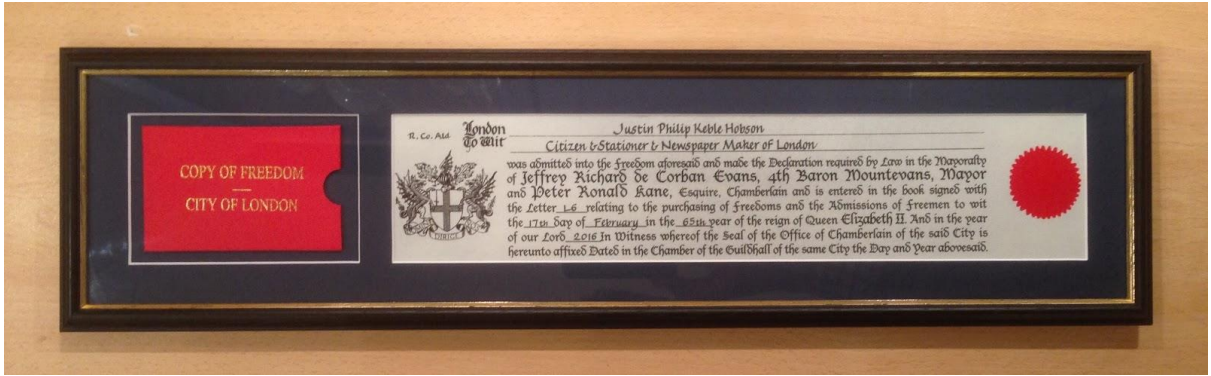 COPY OF FREEDOM
CITY OF LONDON
R. Co. Ald
London
To Wit
Justin Philip Keble Hobson
Citizen & Stationer & Newspaper Maker of London
was admitted into the Freedom aforesaid and made the Declaration required by Law in the Mayoralty
of Jeffrey Richard de Corban Evans, 4th Baron Mountevans, Mayor
and Peter Ronald Kane, Esquire, Chamberlain and is entered in the book signed with
the Letter L6 relating to the purchasing of Freedoms and the Admissions of Freemen to wit
the 17th day of February in the 65th year of the reign of Queen Elizabeth II. And in the year
of our Lord 2016 In Witness whereof the Seal of the Office of Chamberlain of the said City is
hereunto affixed Dated in the Chamber of the Guildhall of the same City the Day and Year abovesaid.
DIRIGE